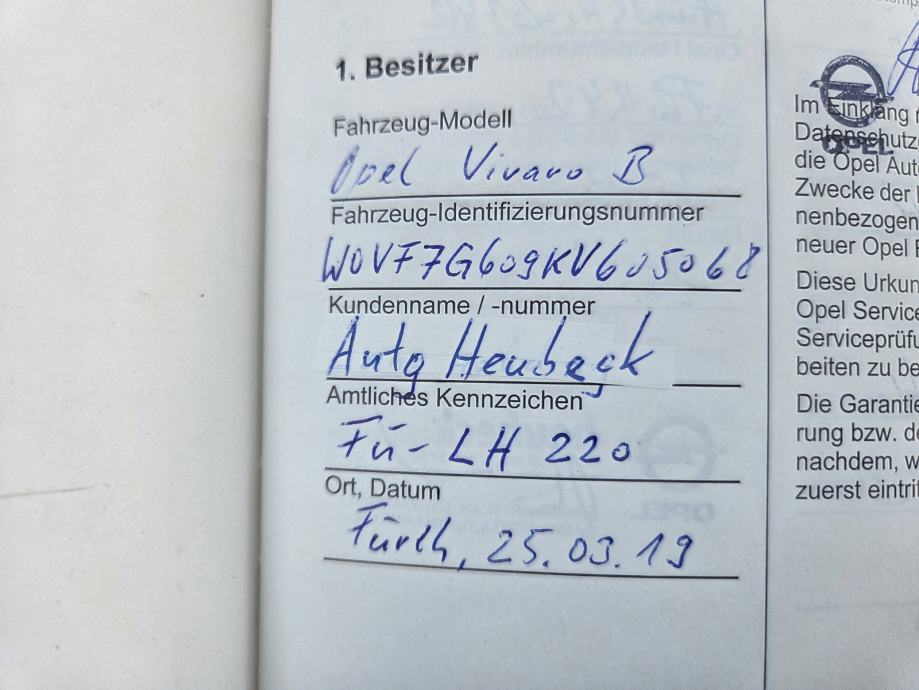 1. Besitzer
Fahrzeug-Modell
Opel Vivaro B
Fahrzeug-Identifizierungsnummer
W0VF7G609KV605068
Kundenname / -nummer
Auto Heubeck
Amtliches Kennzeichen
Fü- LH 220
Ort, Datum
Fürth, 25.03.19
OPEL
Im Einklang
Datenschutz
die Opel Aut
Zwecke der
nenbezogen
neuer Opel
Diese Urkun
Opel Service
Serviceprüfu
beiten zu be
Die Garantie
rung bzw. de
nachdem, w
zuerst eintrit